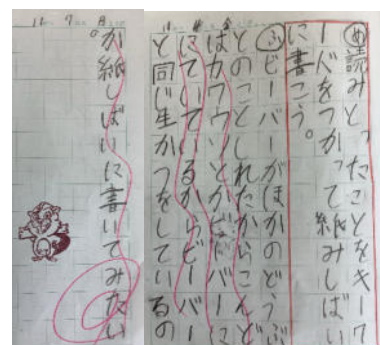 め読みとったことをキーワ
ードをつかって紙みしばい
に書こう。
ふビーバーがほかのどうぶ
とのことしれたからこんど
はカワウソとかビーバーに
にていているからビーバー
と同じ生かつをしているの
か紙しばいに書いてみたい
。